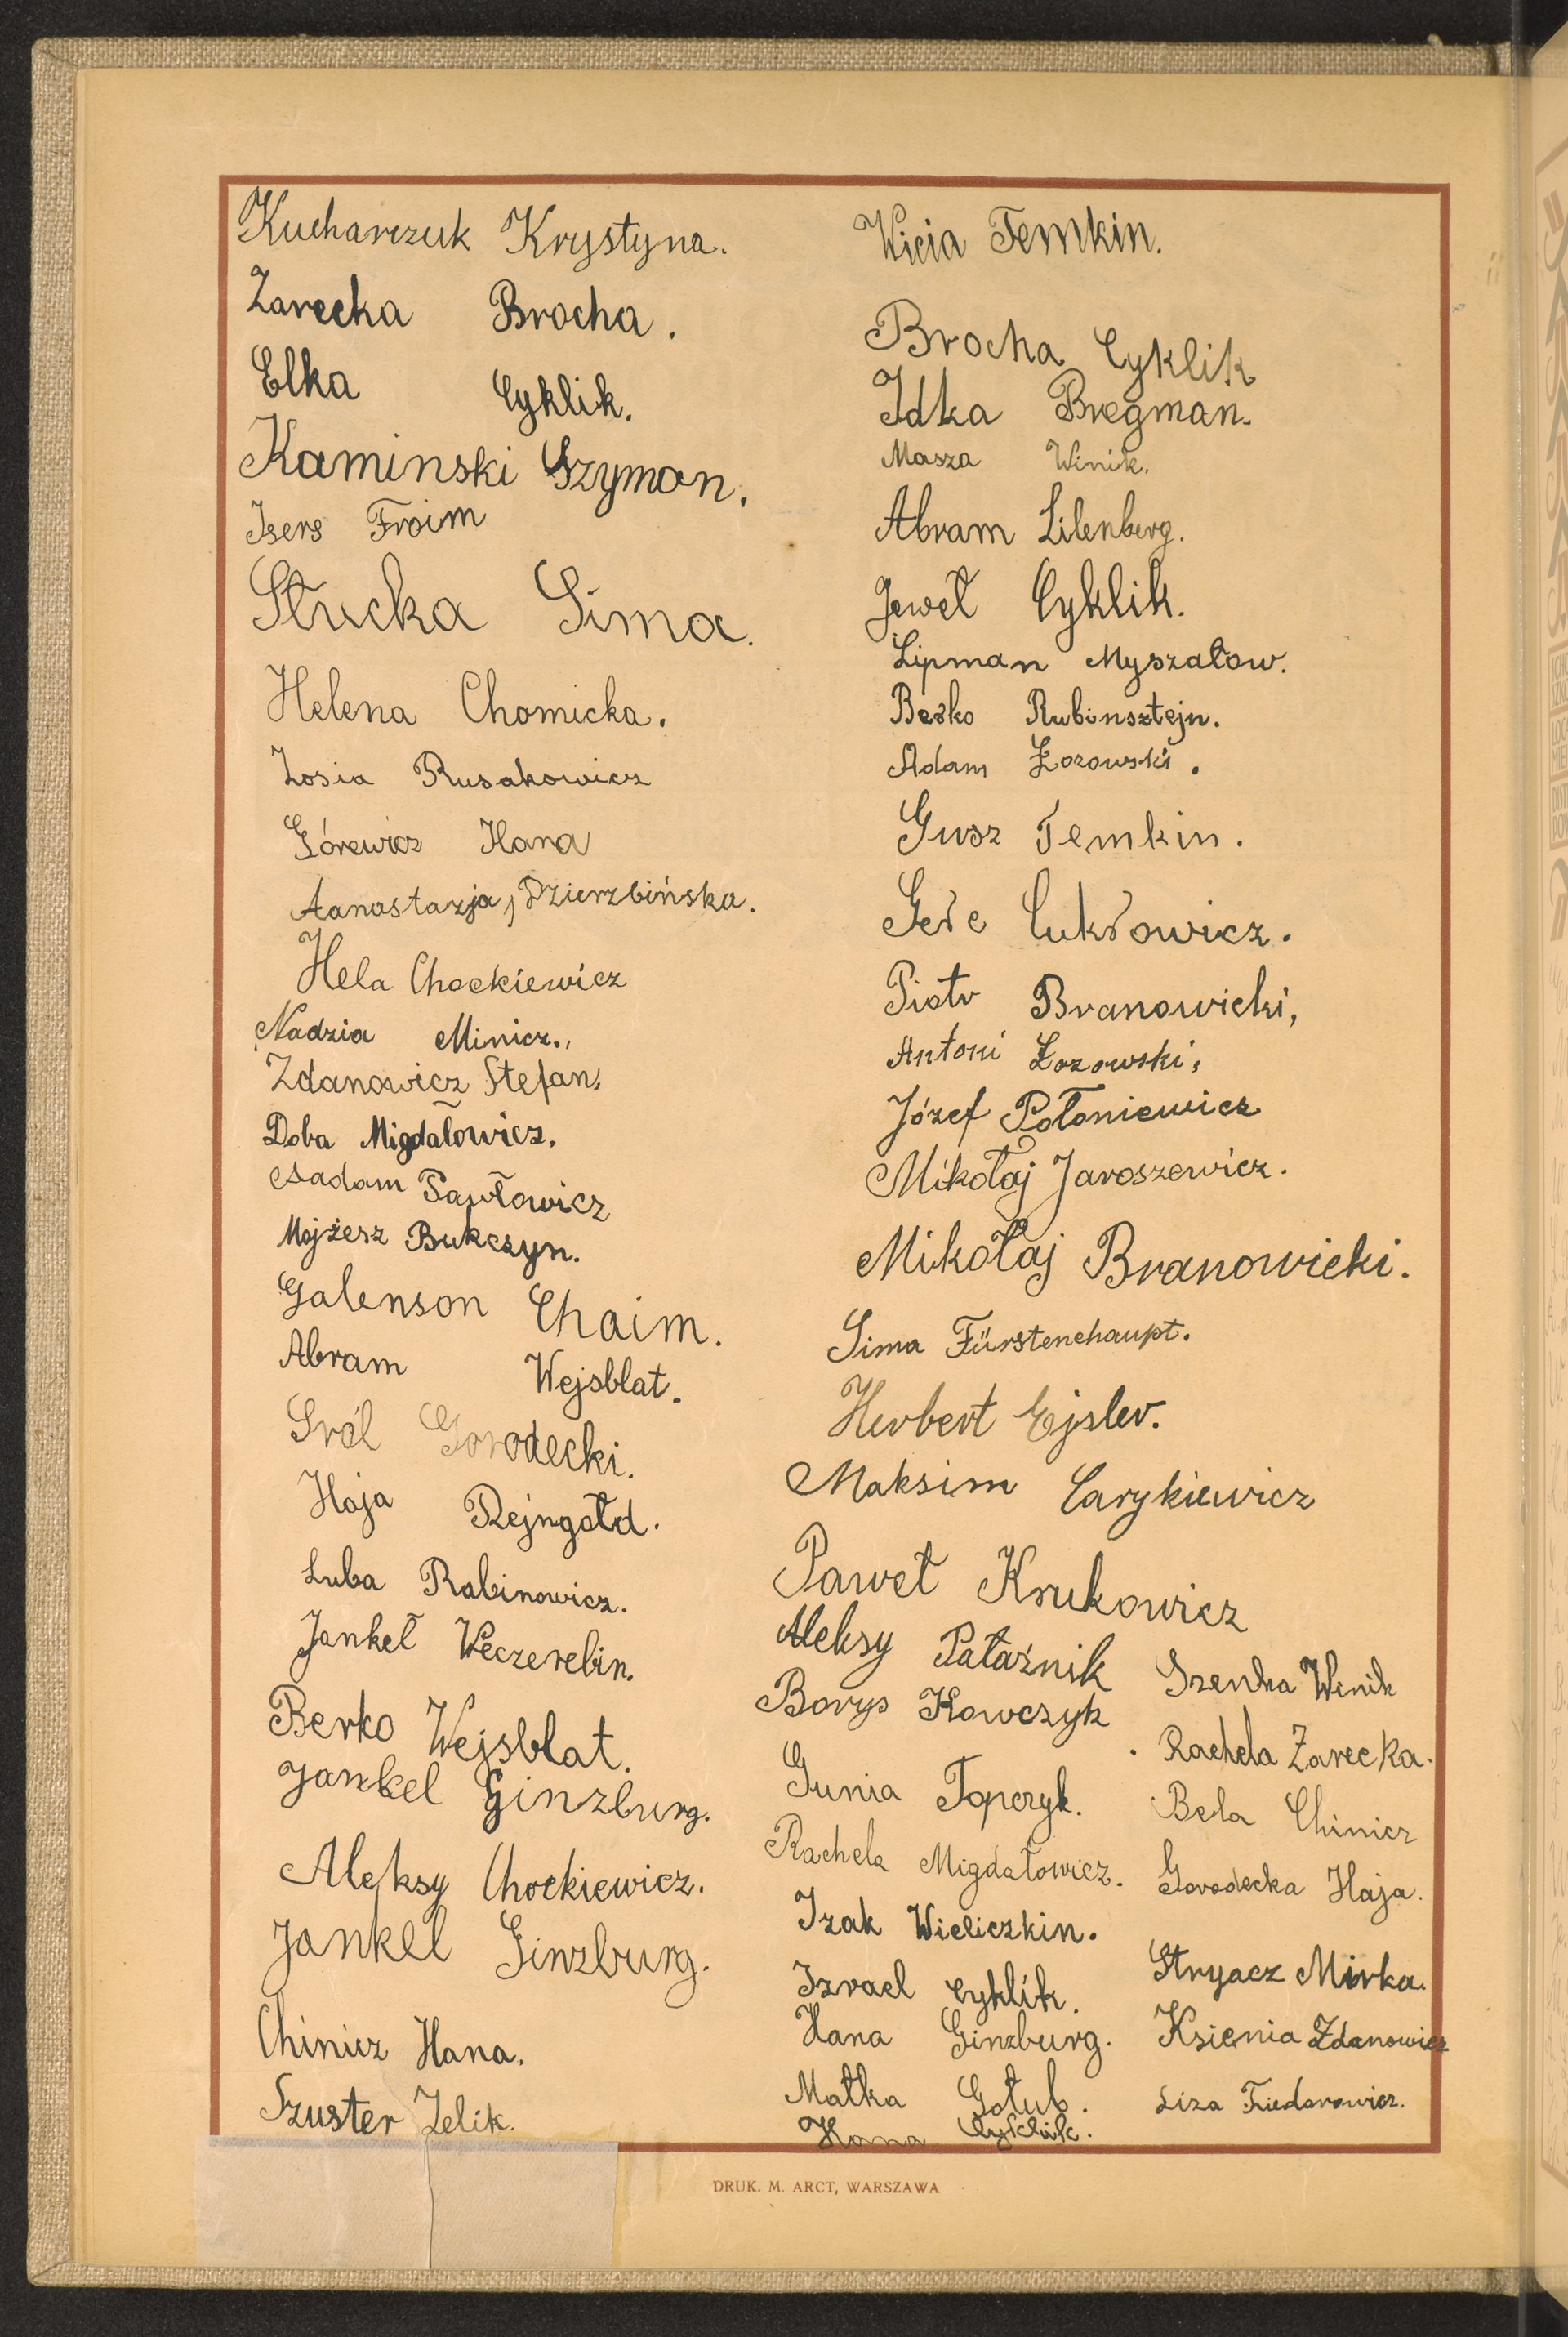 Kucharczuk Krystyna.
Zarecka Brocha.
Elka Cyklik.
Kaminski Szymon.
Isers Froim
Słucka Sima.
Helena Chomicka.
Zosia Rusakowicz
Górewicz Hana
Aanastazja, Dzierzbińska.
Hela Chockiewicz
Nadzia Minicz.,
Zdanowicz Stefan.
Doba Migdałowicz.
Aadam Pawłowicz
Mojżesz Bukczyn.
Galenson Chaim.
Abram Wejsblat.
Sról Gorodecki.
Haja Rejngołd.
Luba Rabinowicz.
Jankeł Weczerebin.
Berko Wejsblat.
Jankel Ginzburg.
Aleksy Chockiewicz.
Jankel Ginzburg.
Chinicz Hana.
Szuster Zelik.
Wicia Temkin.
Brocha Cyklik
Idka Bregman.
Masza Winik.
Abram Lilenberg.
Jeweł Cyklik.
Lipman Myszałow.
Berko Rubinsztejn.
Adam Łozowski.
Gusz Temkin.
Cukrowicz.
Piotr Branowicki,
Antoni Łozowski,
Józef Połoniewicz
Mikołaj Jaroszewicz.
Mikołaj Branowicki.
Sima Fürstenehaupt.
Herbert Ejsler.
Maksim Carykiewicz
Paweł Krukowicz
Aleksy Pałaźnik
Borys Kowczyk
Gunia Topczyk.
Rachela Migdałowicz.
Izak Wieliczkin.
Izrael Cyklik.
Hana Ginzburg.
Małka Gołub.
Hana Cyklik.
Szenka Winik
Rachela Zarecka.
Bela Chinicz
Gorodecka Haja.
Stryacz Mirka.
Ksienia Zdanowicz
Liza Fiedorowicz.
DRUK. M. ARCT, WARSZAWA